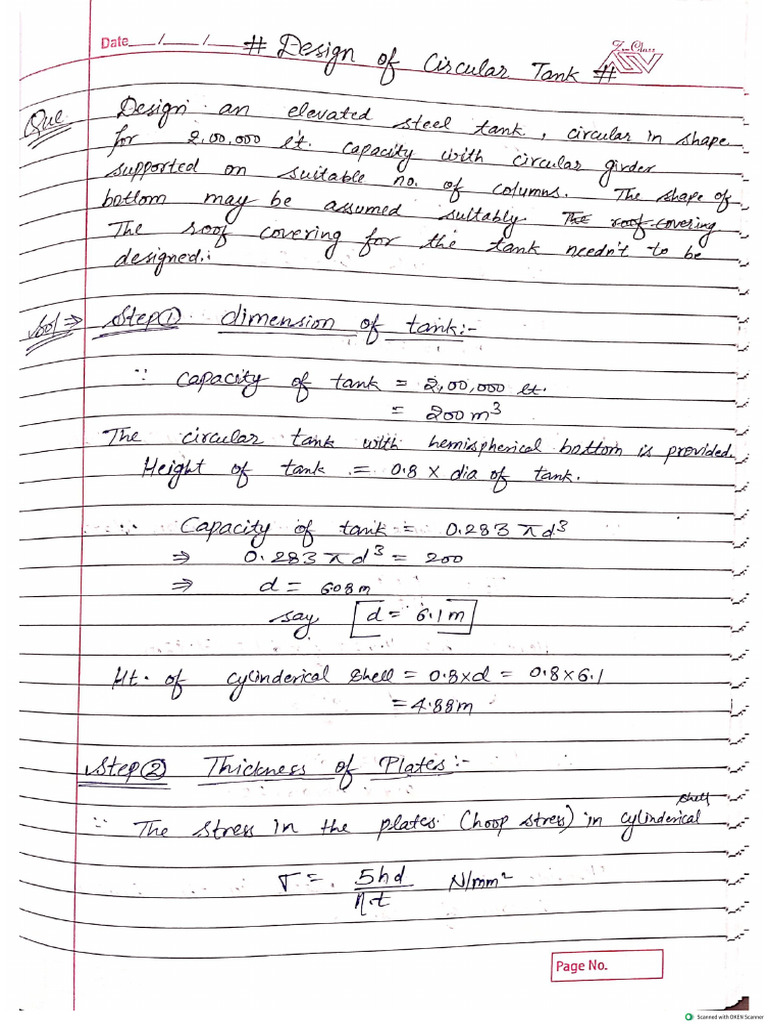 Date __/__/__ # Design of Circular Tank #
Que Design an elevated steel tank, circular in shape
for 2,00,000 lt. capacity with circular girder
supported on suitable no. of columns. The shape of
bottom may be assumed suitably. The roof covering
The roof covering for the tank needn't to be
designed.
Sol ⇒ Step ① dimension of tank:-
∵ Capacity of tank = 2,00,000 lt.
= 200 m³
The circular tank with hemispherical bottom is provided.
Height of tank = 0.8 x dia of tank.
∴ Capacity of tank = 0.283 πd³
⇒ 0.283 πd³ = 200
⇒ d = 6.08m
say d = 6.1m
Ht. of cylinderical shell = 0.8xd = 0.8x6.1
= 4.88m
Step ② Thickness of Plates:-
∵ The stress in the plates (hoop stress) in cylinderical shell
σ = 5hd / ηt N/mm²
Page No.
Scanned with OKEN Scanner